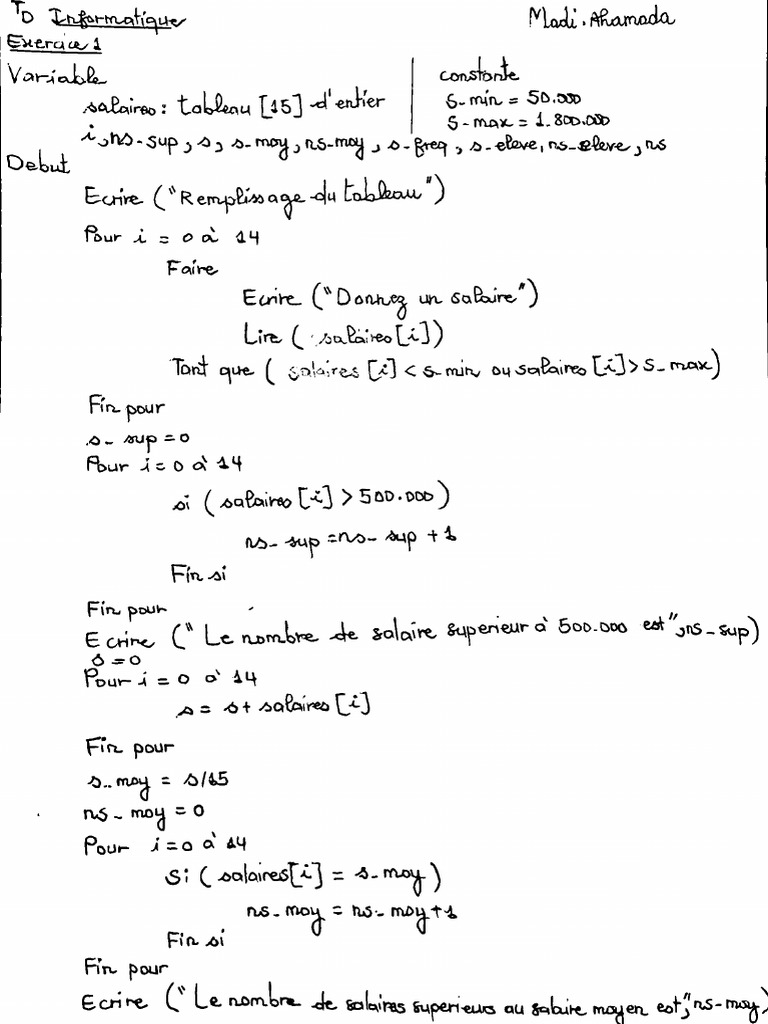 TD Informatique
Madi.Ahamada
Exercice 1
Variable
constante
salaires: tableau [15] d'entier
s-min = 50.000
s-max = 1.800.000
i, ns-sup, s, s-moy, ns-moy, s-freq, s-eleve, ns-eleve, ns
Debut
Ecrire ("Remplissage du tableau")
Pour i = 0 à 14
Faire
Ecrire ("Donnez un salaire")
Lire ( salaires [i])
Tant que ( salaires [i] < s-min ou salaires [i] > s-max)
Fin pour
s- sup = 0
Pour i = 0 à 14
si ( salaires [i] > 500.000 )
ns- sup = ns- sup + 1
Fin si
Fin pour
Ecrire (" Le nombre de salaire superieur à 500.000 est", ns-sup)
s = 0
Pour i = 0 à 14
s = s + salaires [i]
Fin pour
s-moy = s/15
ns- moy = 0
Pour i = 0 à 14
Si ( salaires[i] = s-moy )
ns-moy = ns-moy + 1
Fin si
Fin pour
Ecrire (" Le nombre de salaires superieurs au salaire moyen est", ns-moy)